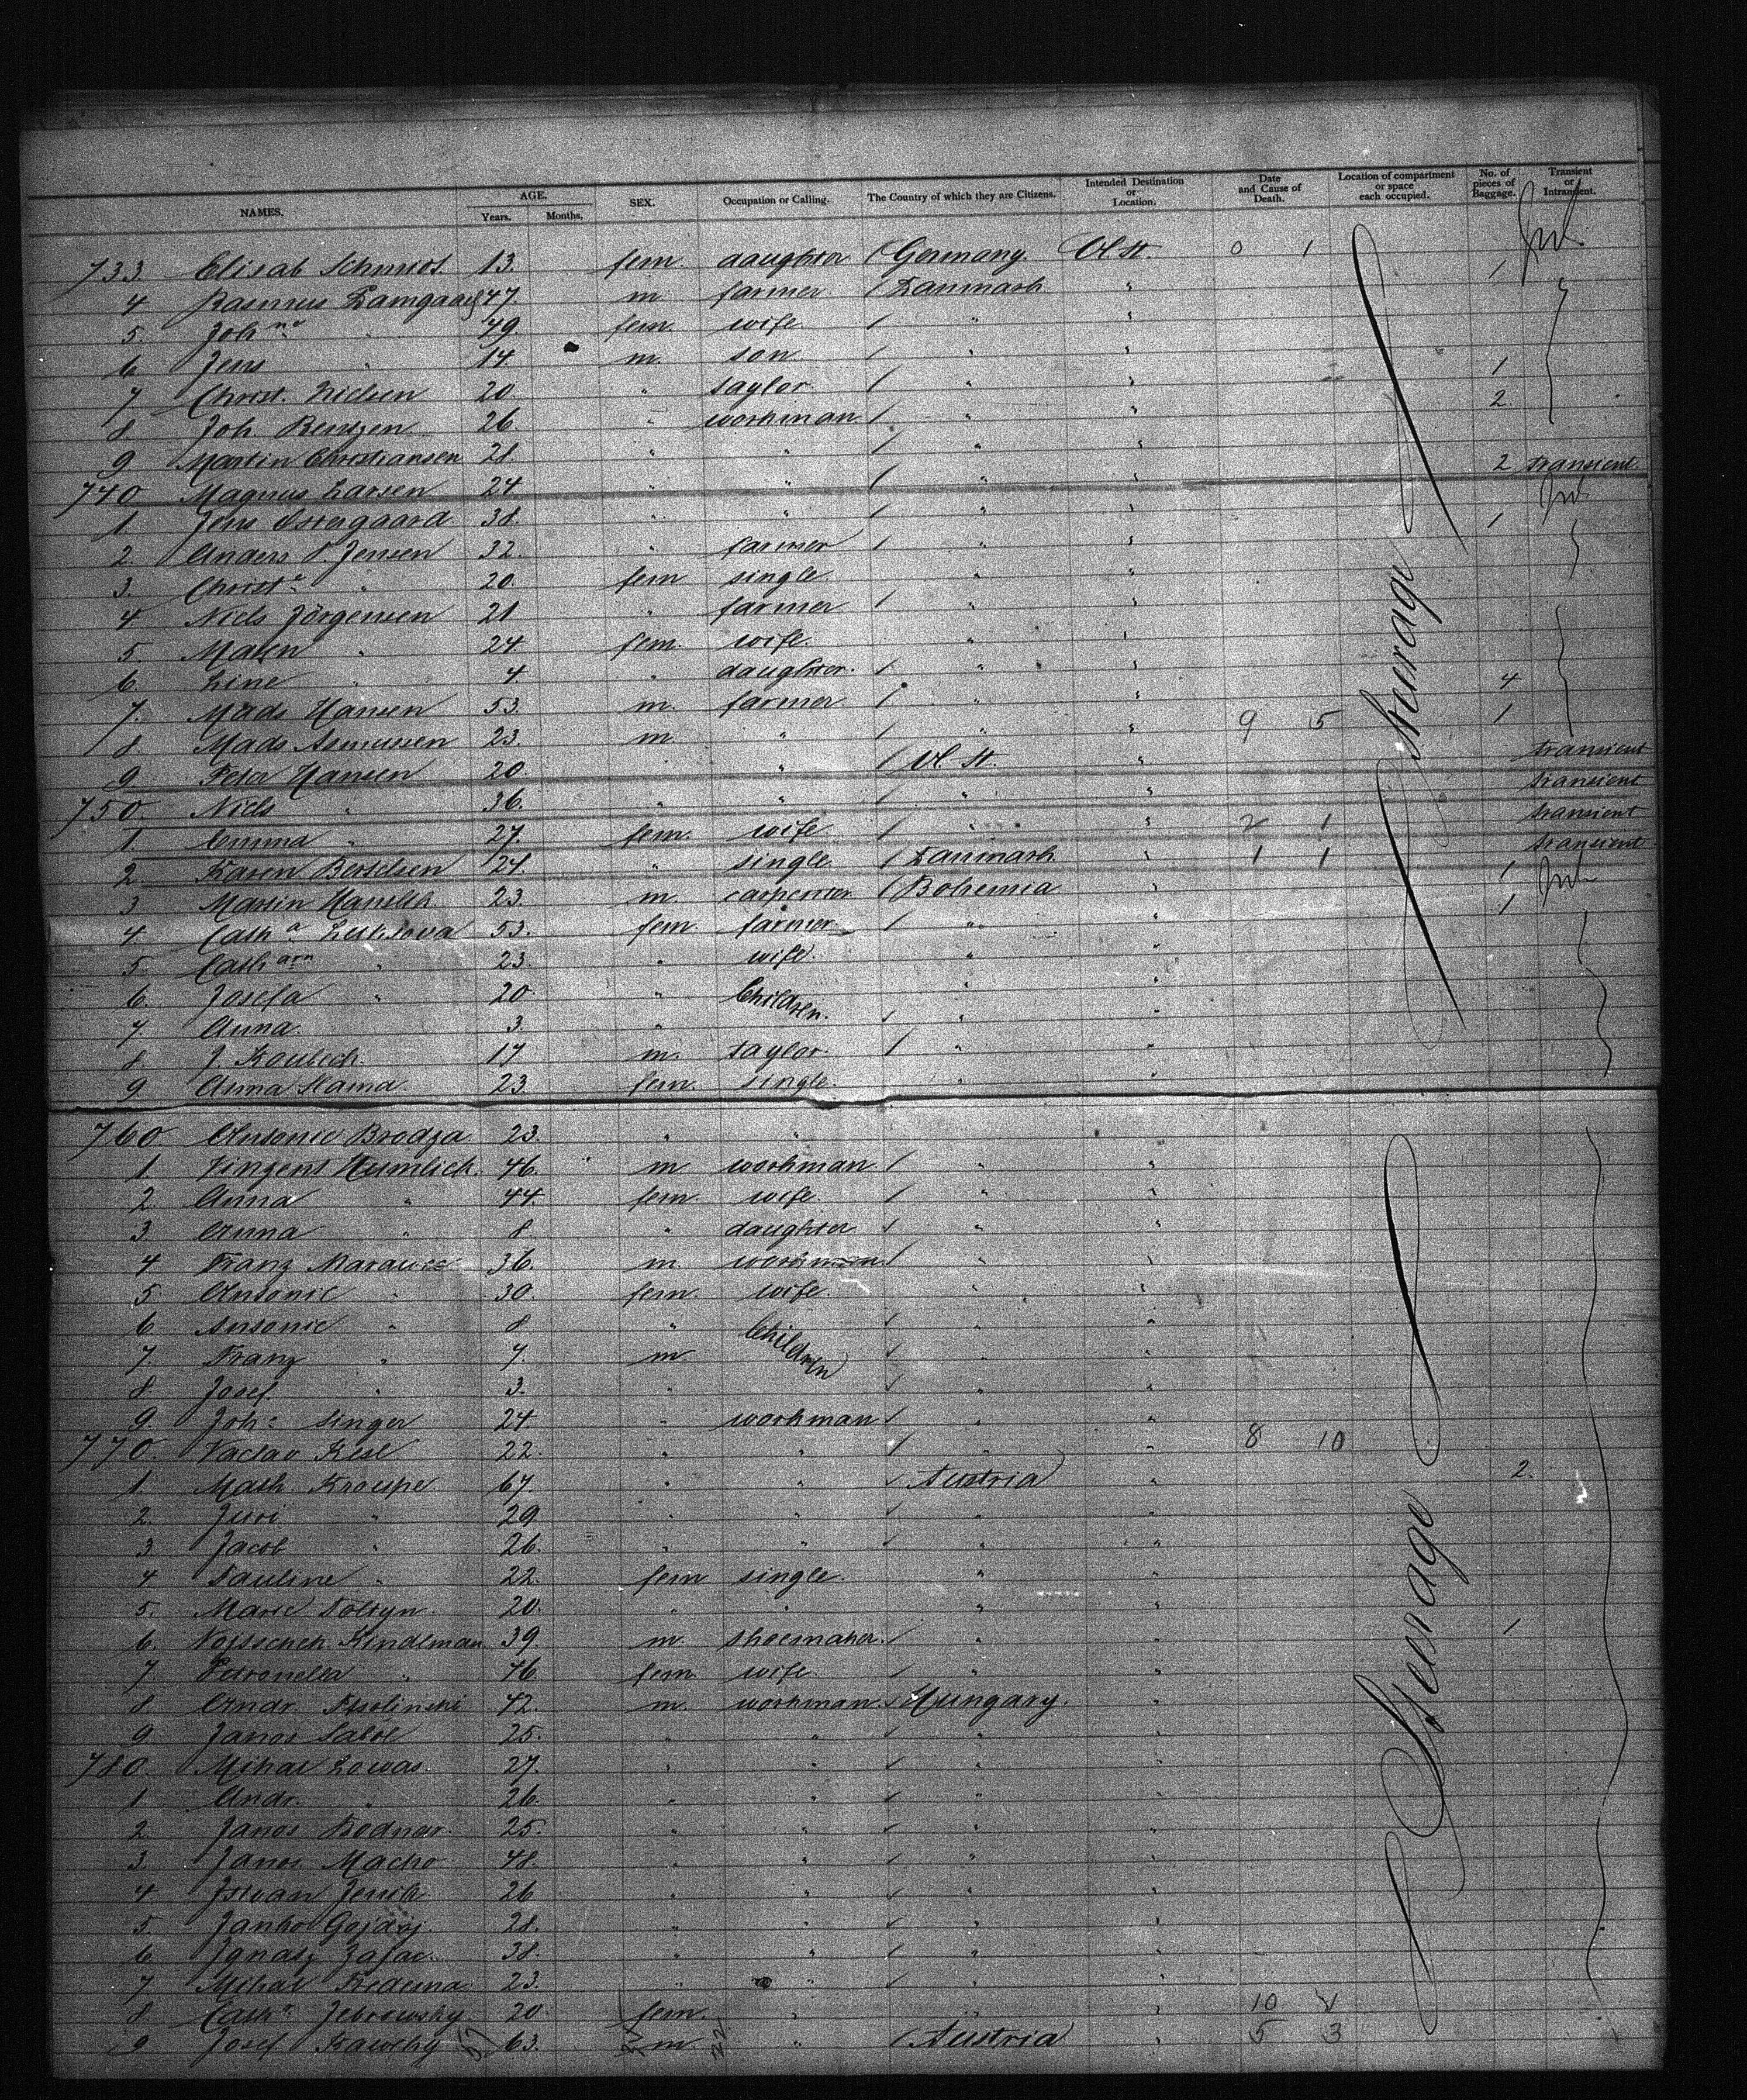 NAMES. AGE. Years. Months. SEX. Occupation or Calling. The Country of which they are Citizens. Intended Destination or Location. Date and Cause of Death. Location of compartment or space each occupied. No. of pieces of Baggage. Transient or Intransient.
733 Elisab Schmidt 13. fem. daughter Germany. 0 1
4 Rasmus 47 m. farmer Danmark " 1
5. Joh ne " 49 fem. wife " "
6 Jens " 14. m. son " "
7 Christ. Nielsen 20 " taylor " " 1
8. Joh. Bentzen 26. " workman " " 2
9 Martin Christiansen 28 " " " "
740 Magnus Larsen 24 " " " " 2 transient
1 Jens Ostergaard 38. " " " "
2. Anders P. Jensen 32. " farmer " " 1
3. Christe " 20. fem single " "
4 Niels Jörgensen 21 " farmer " "
5. Maren " 24. fem. wife. " "
6. Line " 4 " daughter. " "
7. Mads Hansen 53. m. farmer " " 4
8 Mads Asmussen 23. m " " " 9 5 1
9. Peter Hansen 20. " " " transient
750. Niels " 36. " " " " transient
1. Emma " 27. fem. wife " " 2 1 transient
2. Karen Bertelsen 24. " single Danmark " 1 1 transient
3 Martin 23. m. carpenter Bohemia " 1
4. Catha 53. fem. farmer " " 1
5. Catharn " 23. " wife. " "
6. Josefa " 20. " Children. " "
7. Anna 3. " " "
8. J. Koubeck. 17 m. taylor. " "
9 Anna Slama 23. fem. single. " "
760 Antonie Brodza 23. " "
1. Vinzent Humlich. 46. m workman " "
2. Anna " 44. fem. wife " "
3. Anna " 8 " daughter " "
4 Franz 36. m. workman " "
5 Antonie " 30. fem. wife. " "
6 Antonie " 8 " Children " "
7. Franz " 7. m. " "
8 Josef " 3. " " "
9. Joh: Singer 24 " workman " "
770. Vaclav 22. " " " " 8 10
1. Math. Kroupe 67. " " Austria " 2.
2. Juri " 29 " " "
3 Jacob " 26. " " " "
4 Pauline " 22. fem single. " "
5. Marie 20. " " " "
6. Kindlman 39. m. shoemaker. " " 1
7 Petronella " 46 fem. wife " "
8. Andr. 42. m. workman Hungary. "
9 Janos Sabol 25. " " " "
780. Mihal Lowas. 27. " " " "
1. Andr. " 26. " " " "
2. Janos Bodnar. 25. " " " "
3. Janos Macho 48. " " " "
4 Istvan 26 " " " "
5. Janko 28. " " " "
6 Ignatz Zajac. 38. " " " "
7 Mihal 23. " " " "
8 Cath. Zebrowsky 20 fem. " " " 10
9. Josef 63. m. " Austria " 5 3
Steerage
Steerage